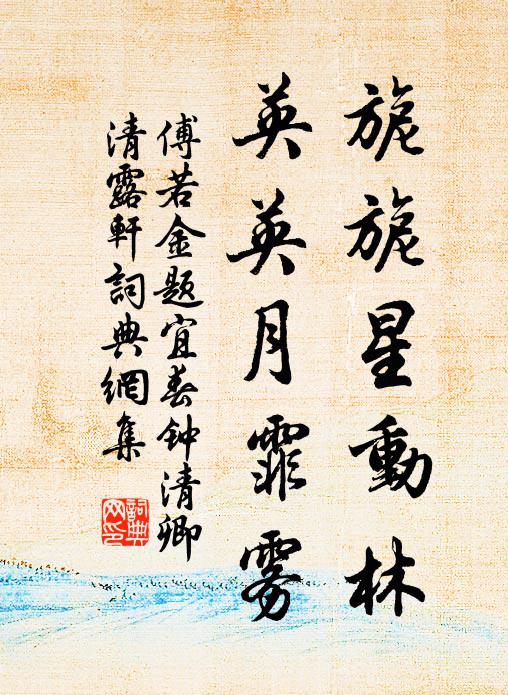 旎旎星動林
英英月霏雾
傅若金题宜春钟清卿
清露軒詞典網集
詞典